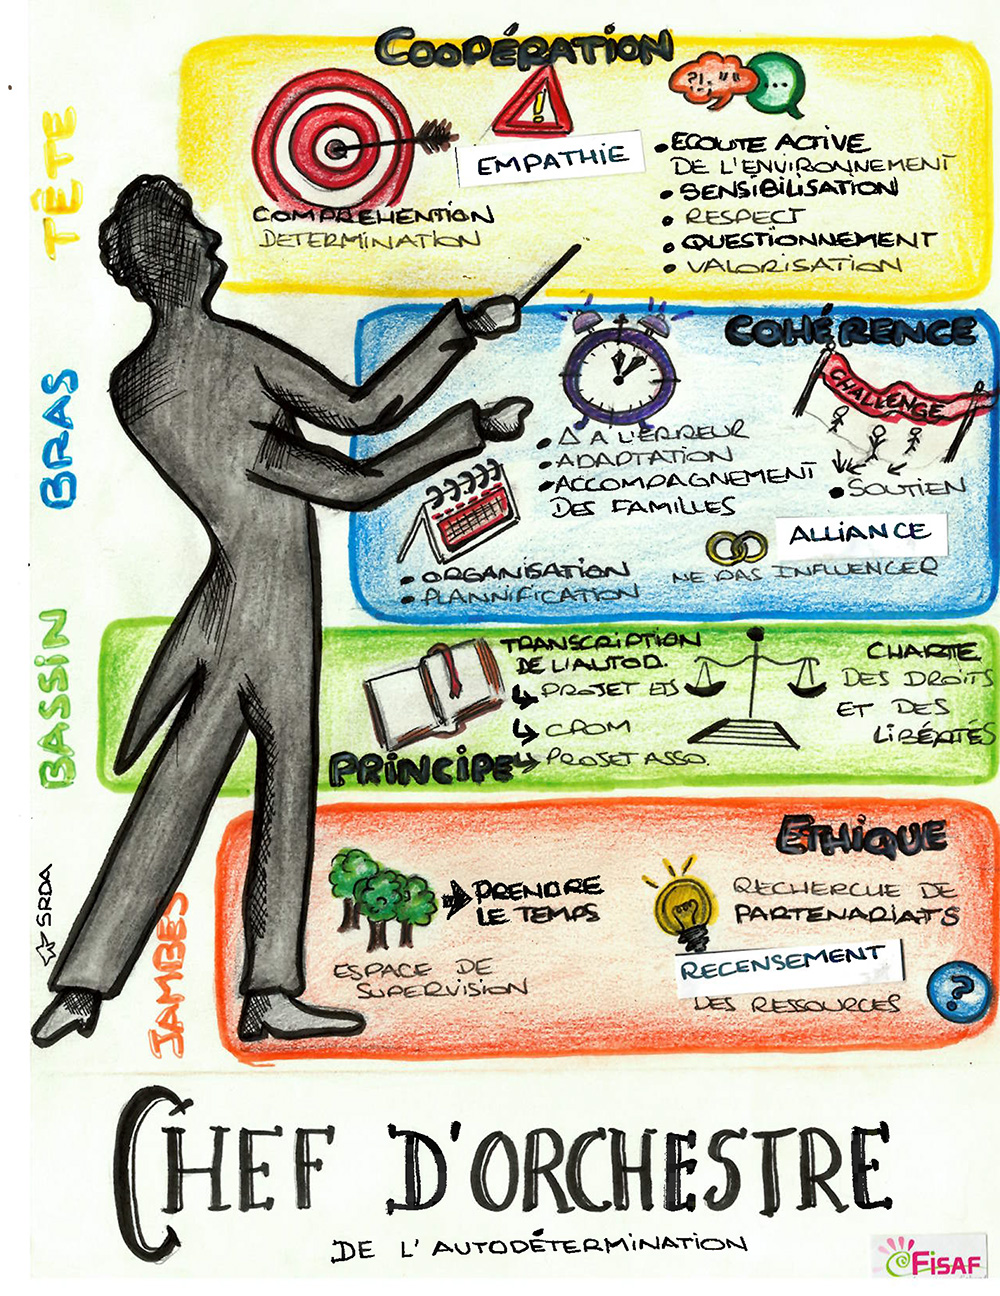 COOPÉRATION
TÊTE
EMPATHIE
COMPREHENTION
DETERMINATION
• ECOUTE ACTIVE
DE L'ENVIRONNEMENT
• SENSIBILISATION
• RESPECT
• QUESTIONNEMENT
• VALORISATION
BRAS
COHÉRENCE
CHALLENGE
• Δ A L'ERREUR
• ADAPTATION
• ACCOMPAGNEMENT
DES FAMILLES
• SOUTIEN
ALLIANCE
NE PAS INFLUENCER
• ORGANISATION
• PLANNIFICATION
BASSIN
TRANSCRIPTION
DE L'AUTOD.
↳ PROJET ETS
↳ CPOM
↳ PROJET ASSO.
PRINCIPE
CHARTE
DES DROITS
ET DES
LIBÉRTÉS
JAMBES
ETHIQUE
PRENDRE
LE TEMPS
ESPACE DE
SUPERVISION
RECHERCHE DE
PARTENARIATS
RECENSEMENT
DES RESSOURCES
?
SRDA
CHEF D'ORCHESTRE
DE L'AUTODÉTERMINATION
FiSAF